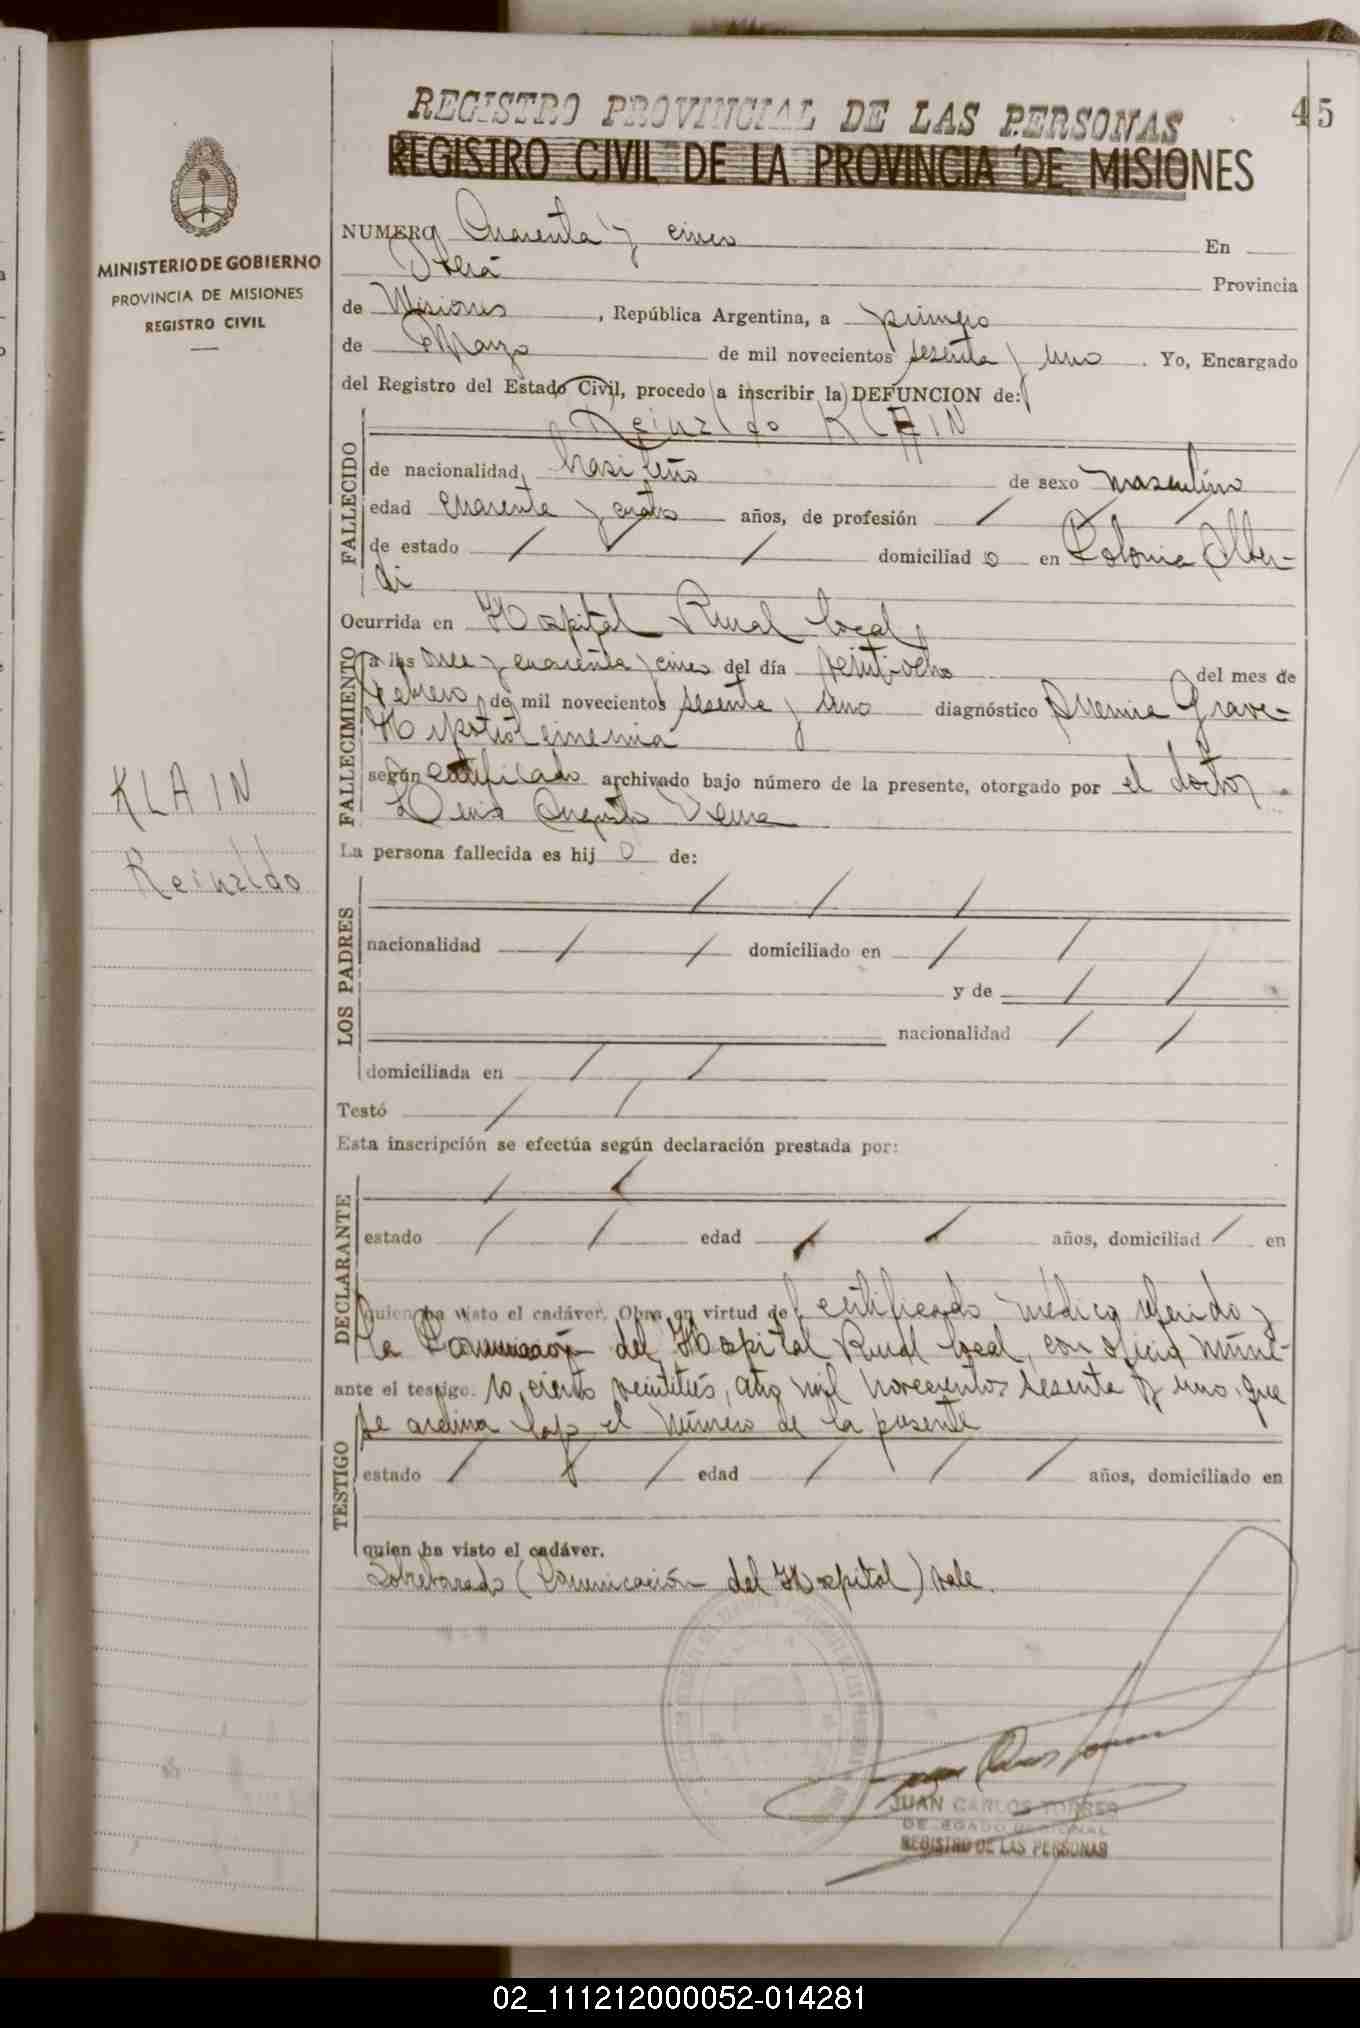 REGISTRO PROVINCIAL DE LAS PERSONAS
45
REGISTRO CIVIL DE LA PROVINCIA DE MISIONES
MINISTERIO DE GOBIERNO
PROVINCIA DE MISIONES
REGISTRO CIVIL
NUMERO Cuarenta y cinco En
Oberá Provincia
de Misiones, República Argentina, a primero
de Marzo de mil novecientos sesenta y uno. Yo, Encargado
del Registro del Estado Civil, procedo a inscribir la DEFUNCION de:
Reinaldo KLAIN
FALLECIDO
de nacionalidad brasileño de sexo masculino
edad cuarenta y cuatro años, de profesión /
de estado / / domiciliad o en Colonia Alber-
di
Ocurrida en Hospital Rural local,
FALLECIMIENTO
a las once y cuarenta y cinco del día veintiocho del mes de
Febrero, de mil novecientos sesenta y uno diagnóstico Anemia Grave-
según certificado archivado bajo número de la presente, otorgado por el doctor
Luis Augusto
KLAIN
Reinaldo
La persona fallecida es hij o de:
/ / /
LOS PADRES
nacionalidad / / domiciliado en / /
y de / /
nacionalidad / /
domiciliada en / /
Testó / /
Esta inscripción se efectúa según declaración prestada por:
DECLARANTE
/ /
estado / / edad / / años, domiciliad / en
quien ha visto el cadáver. Obra en virtud del certificado médico referido y
la Comunicación del Hospital Rural local, con oficio núme-
ante el testigo. ro, ciento veintitrés, año mil novecientos sesenta y uno, que
se archiva bajo el número de la presente
TESTIGO
estado / / edad / / / años, domiciliado en
quien ha visto el cadáver.
Sobreborrado (Comunicación del Hospital) vale.
JUAN CARLOS TORRES
DELEGADO REGIONAL
REGISTRO DE LAS PERSONAS
02_111212000052-014281